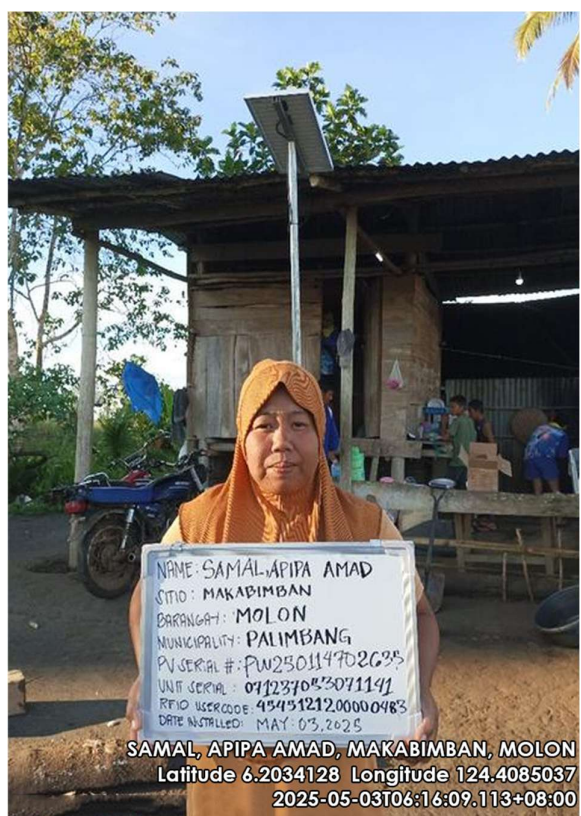 NAME: SAMAL, APIPA AMAD
SITIO: MAKABIMBAN
BARANGAY: MOLON
MUNICIPALITY: PALIMBANG
PV SERIAL #: PW250114702635
UNIT SERIAL: 071237053071141
RFID USERCODE: 4545121200000483
DATE INSTALLED: MAY 03, 2025
SAMAL, APIPA AMAD, MAKABIMBAN, MOLON
Latitude 6.2034128 Longitude 124.4085037
2025-05-03T06:16:09.113+08:00